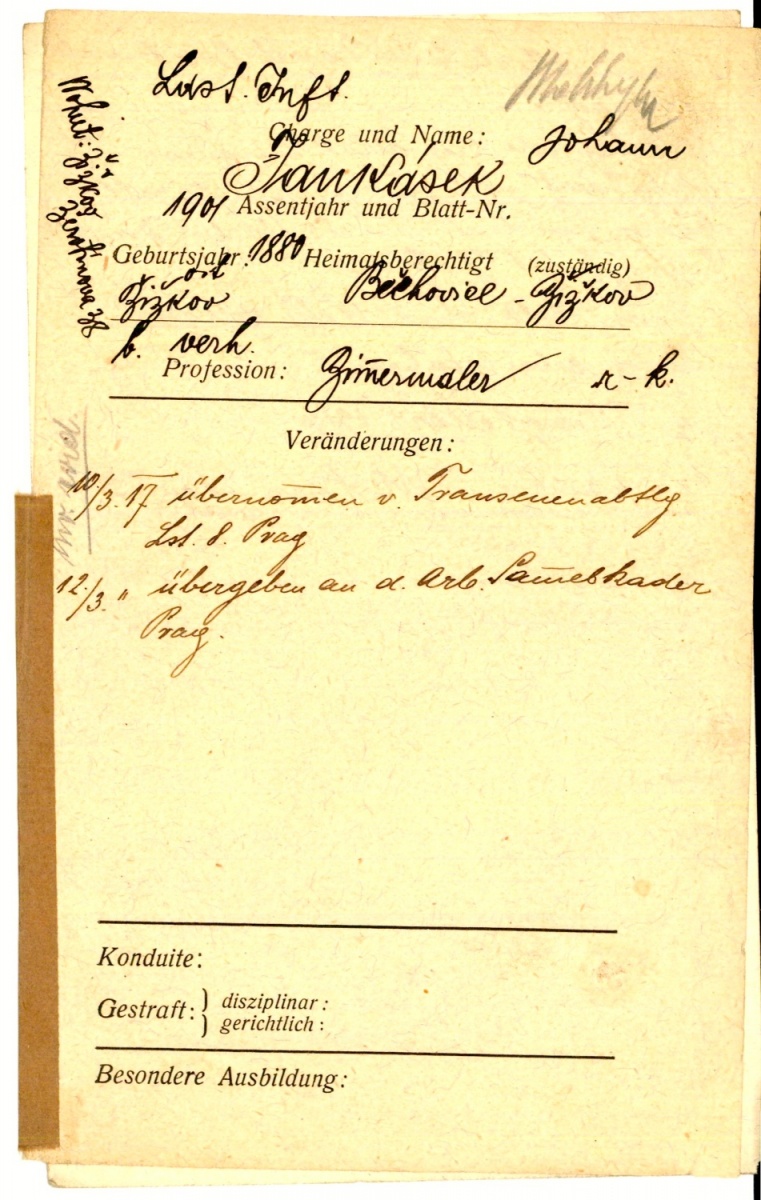 Ldst. Inft.
Charge und Name: Johann
Ťaukásek
1901 Assentjahr und Blatt-Nr.
Geburtsjahr: 1880 Heimatsberechtigt (zuständig)
ort
Žižkov Běchovice - Žižkov
b. verh.
Profession: Zim̄ermaler r-k.
Wohnt: Žižkov
38
Veränderungen:
10./3. 17 übernom̄en v.
Lst. 8. Prag
12./3. " übergeben an d. Arb. Sam̄elkader
Prag.
Konduite:
Gestraft: } disziplinar:
gerichtlich:
Besondere Ausbildung: